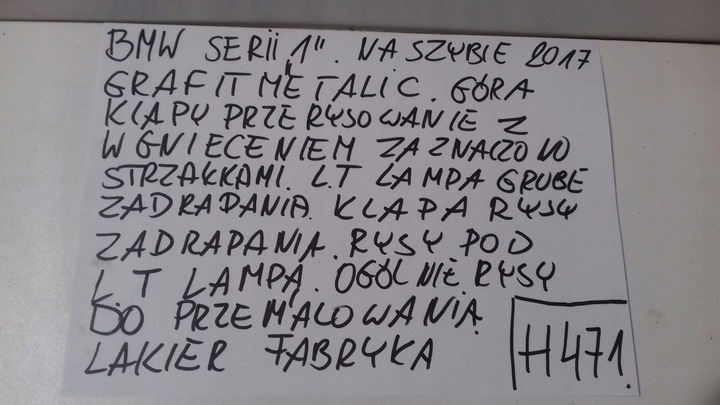 BMW SERII "1". NA SZYBIE 2017
GRAFIT METALIC. GÓRA
KLAPY PRZERYSOWANIE Z
WGNIECENIEM ZAZNACZONO
STRZAKKAMI. L.T LAMPA GRUBE
ZADRAPANIA. KLAPA RYSY
ZADRAPANIA. RYSY POD
L T LAMPĄ. OGÓLNIE RYSY
DO PRZEMALOWANIA
LAKIER FABRYKA
H471.